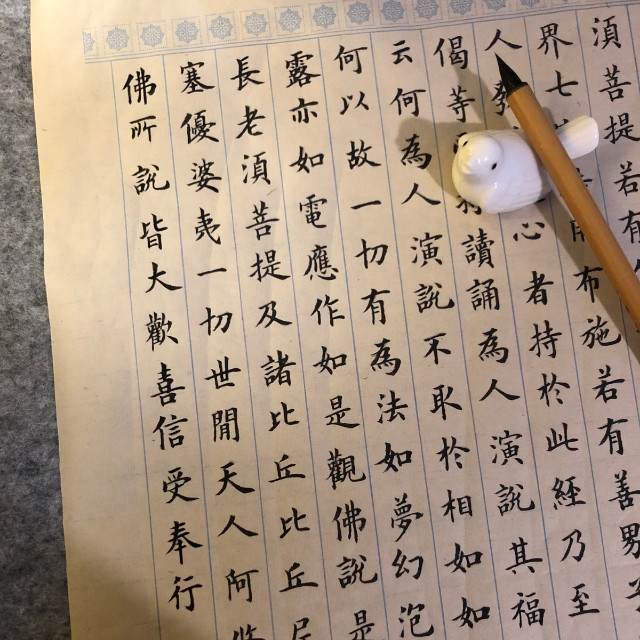 須菩提若有
界七用布施若有善男
人發心者持於此經乃至
偈等讀誦為人演說其福
云何為人演說不取於相如如
何以故一切有為法如夢幻泡
露亦如電應作如是觀佛說是
長老須菩提及諸比丘比丘尼
塞優婆夷一切世間天人阿
佛所說皆大歡喜信受奉行